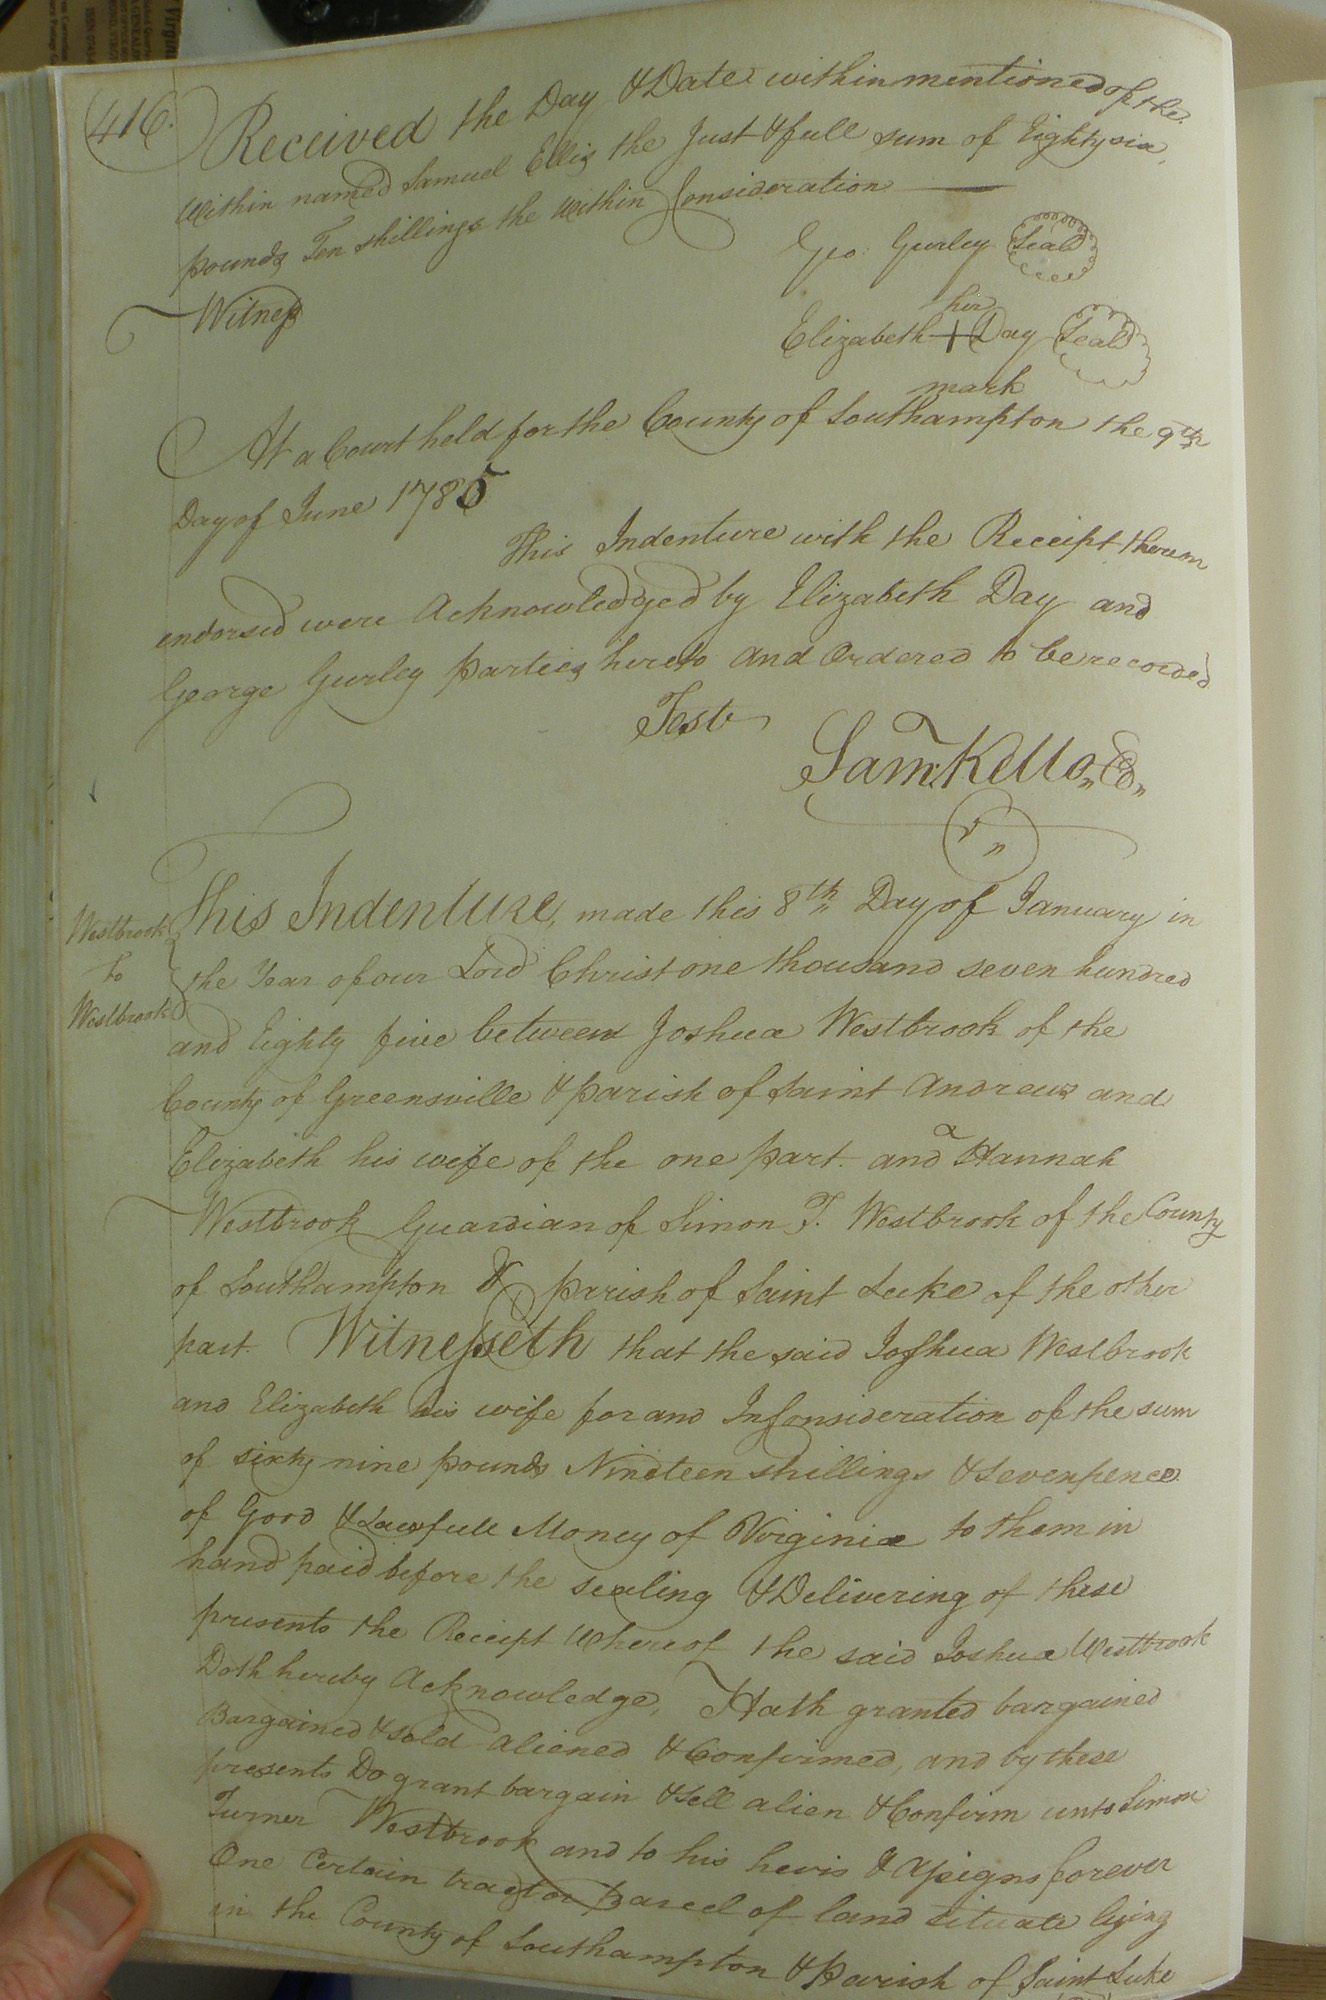 416.
Received the Day & Date within mentioned of the
Within named Samuel Ellis the Just & full sum of Eighty six
pounds Ten shillings the Within Consideration
Geo. Gurley Seal
Witness
her
Elizabeth + Day Seal
mark
At a Court held for the County of Southampton the 9th
Day of June 1785
This Indenture with the Receipt thereon
endorsed were Acknowledged by Elizabeth Day and
George Gurley parties hereto and Ordered to be recorded
Teste
Sam. Kello,, 
This Indenture, made this 8th Day of January in
Westbrook
to
Westbrook
the Year of our Lord Christ one thousand seven hundred
and Eighty five between Joshua Westbrook of the
County of Greensville & parish of Saint Andrews and
Elizabeth his wife of the one part. and Hannah
Westbrook Guardian of Simon T. Westbrook of the County
of Southampton & parish of Saint Luke of the other
part. Witnesseth that the said Joshua Westbrook
and Elizabeth his wife for and In Consideration of the sum
of sixty nine pounds Nineteen shillings & sevenpence
of Good & Lawfull Money of Virginia to them in
hand paid before the sealing & Delivering of these
presents the Receipt Whereof the said Joshua Westbrook
Doth hereby Acknowledge, Hath granted bargained
Bargained & sold aliened & Confirmed, and by these
presents Do grant bargain & sell alien & Confirm unto Simon
Turner Westbrook and to his heirs & Assigns forever
One Certain tract or parcel of land situate lying
in the County of Southampton & Parish of Saint Luke